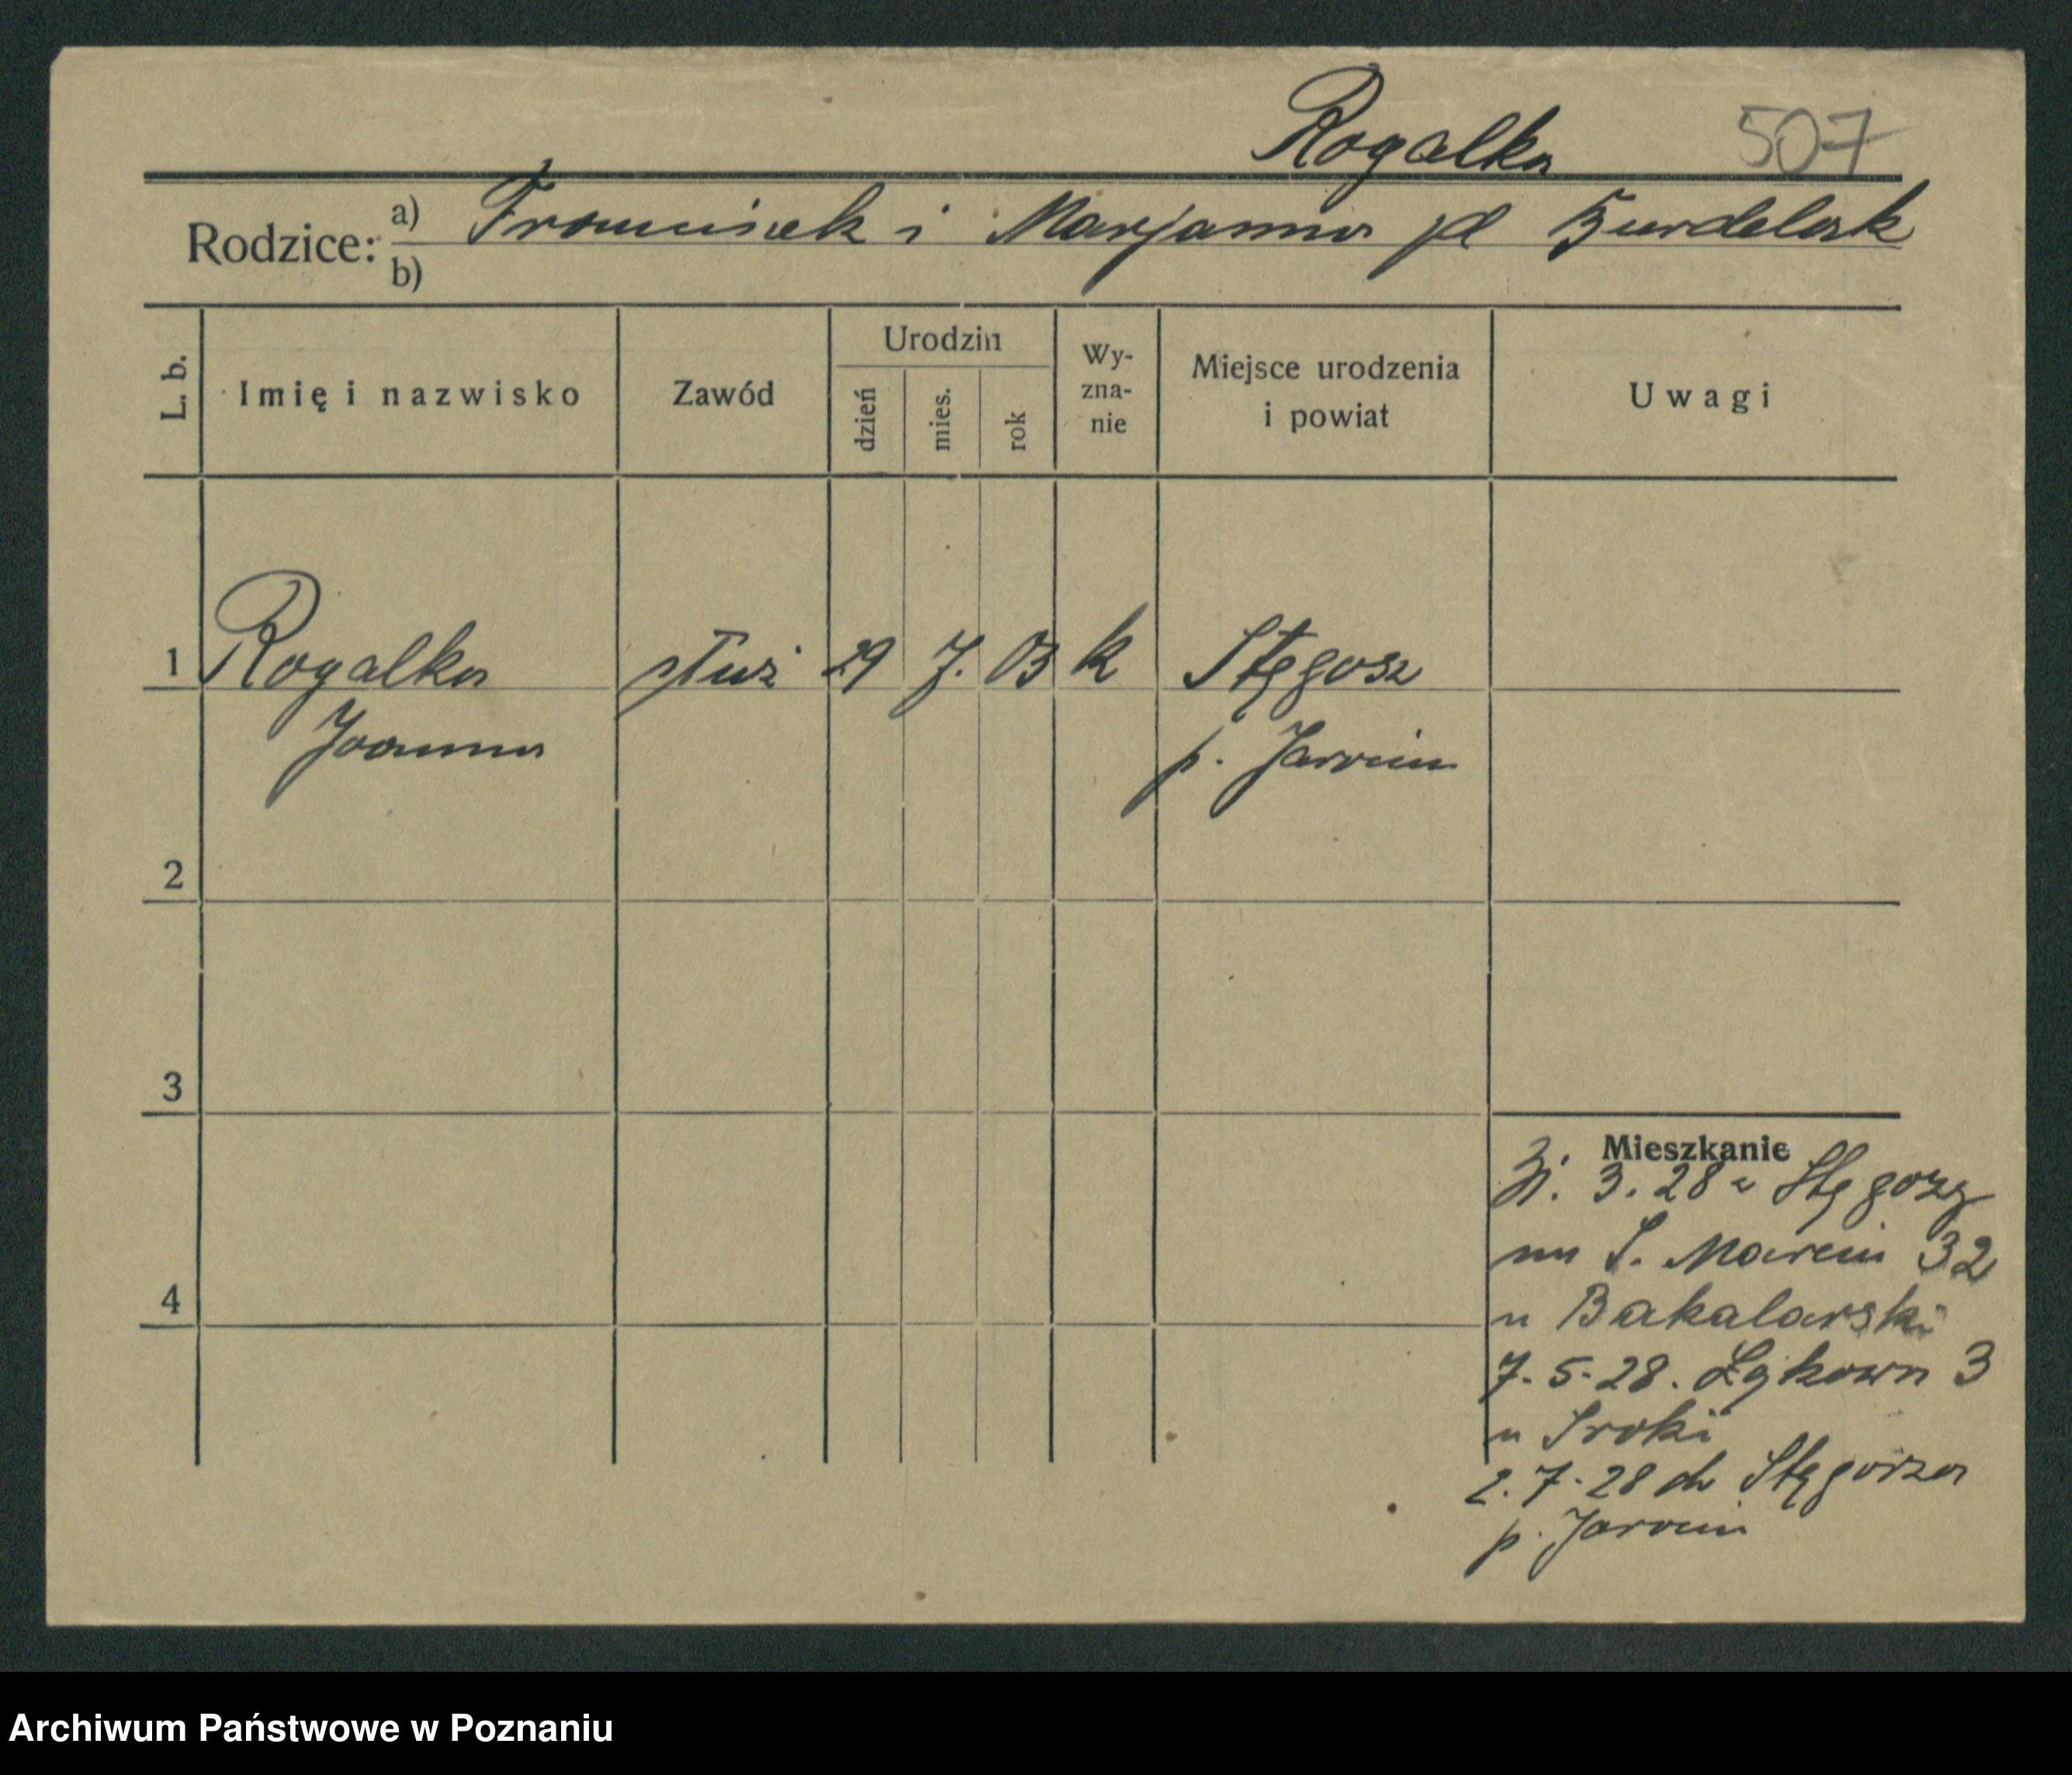 Rogalka 507
Rodzice: a) Franciszek i Marjanna
b)
L. b. Imię i nazwisko Zawód Urodzin dzień mies. rok Wy-zna-nie Miejsce urodzenia i powiat Uwagi
1 Rogalka służ 29 7. 03 k Stęgosz
Joanna p. Jarocin
2
3
4
Mieszkanie
3. 28 z Stęgosz
na S. Marcin 32
u Bakalarski
7. 5. 28. Łąkowa 3
u Sroki
2. 7. 28 do Stęgosza
p. Jarocin
Archiwum Państwowe w Poznaniu